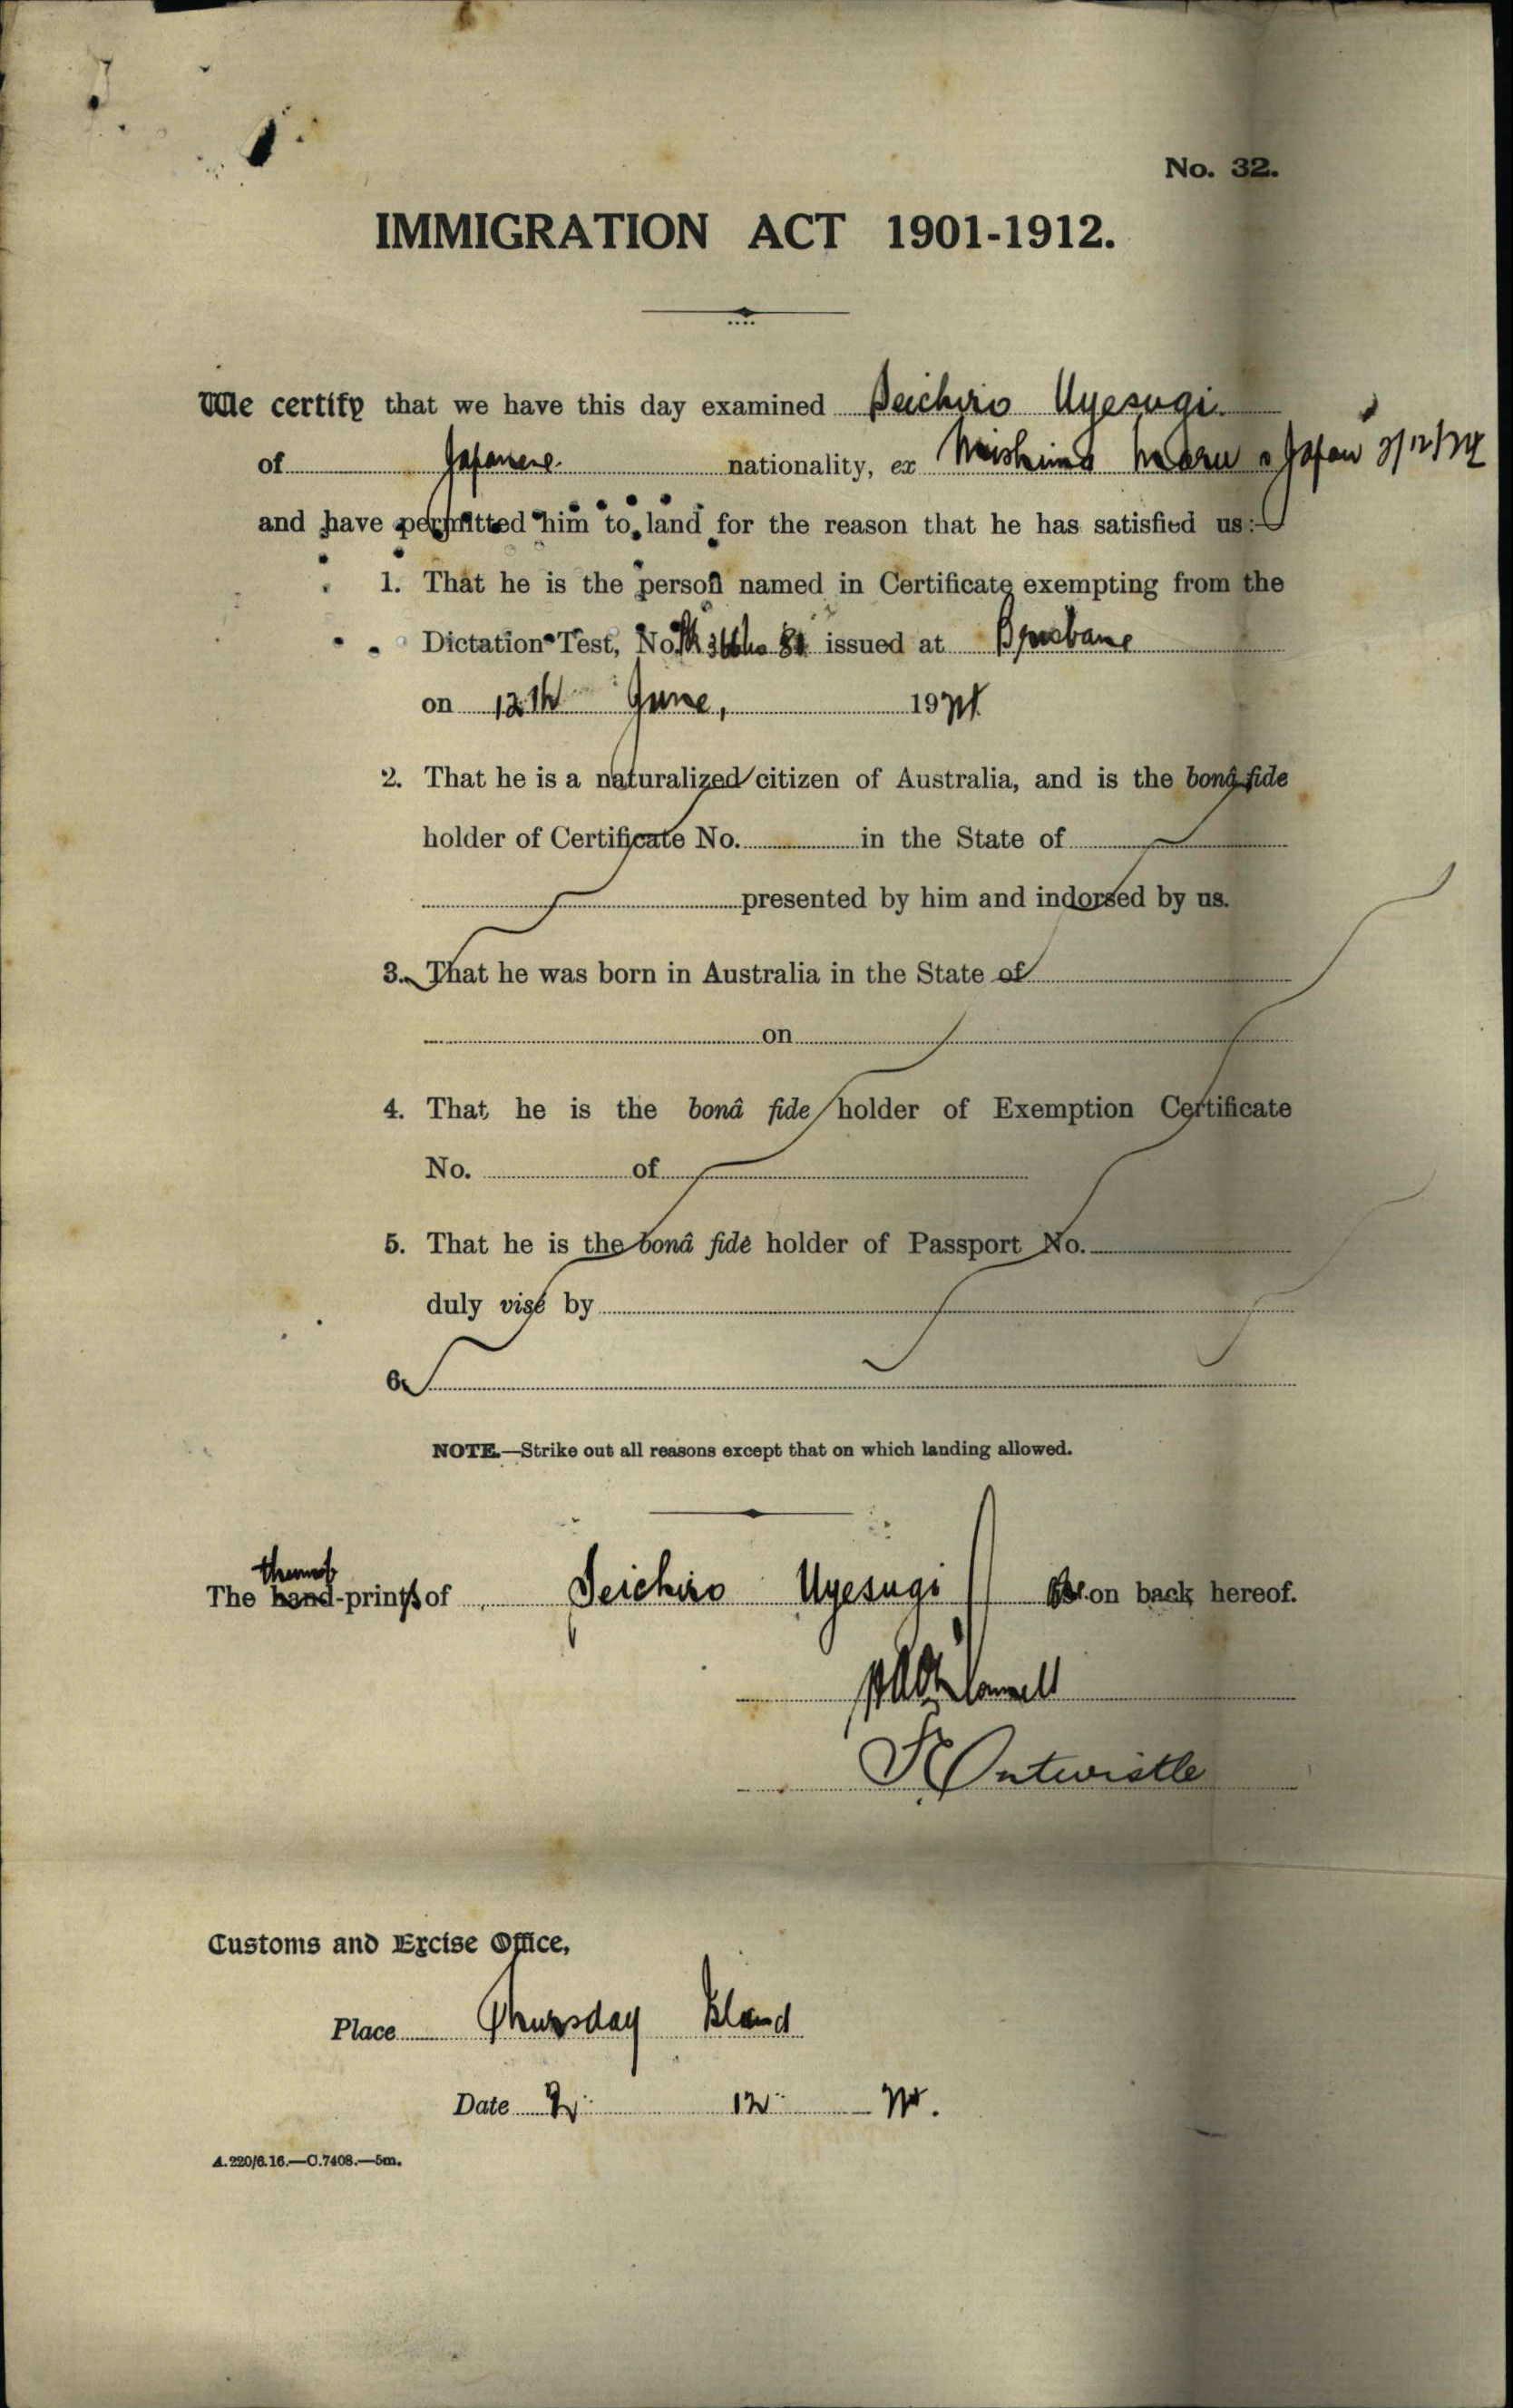 No. 32.
IMMIGRATION ACT 1901-1912.
We certify that we have this day examined Seichiro Uyesugi
of Japanese nationality, ex Mishima Maru Japan
and have permitted him to land for the reason that he has satisfied us:—
1. That he is the person named in Certificate exempting from the
Dictation Test, No. issued at Brisbane
on 12th June, 19
2. That he is a naturalized citizen of Australia, and is the bonâ fide
holder of Certificate No. in the State of
presented by him and indorsed by us.
3. That he was born in Australia in the State of
on
4. That he is the bonâ fide holder of Exemption Certificate
No. of
5. That he is the bonâ fide holder of Passport No.
duly visé by
6.
NOTE.—Strike out all reasons except that on which landing allowed.
thumb
The hand-prints of Seichiro Uyesugi on back hereof.
Entwistle
Customs and Excise Office,
Place Thursday Island
Date 12
A.220/6.16.—C.7408.—5m.